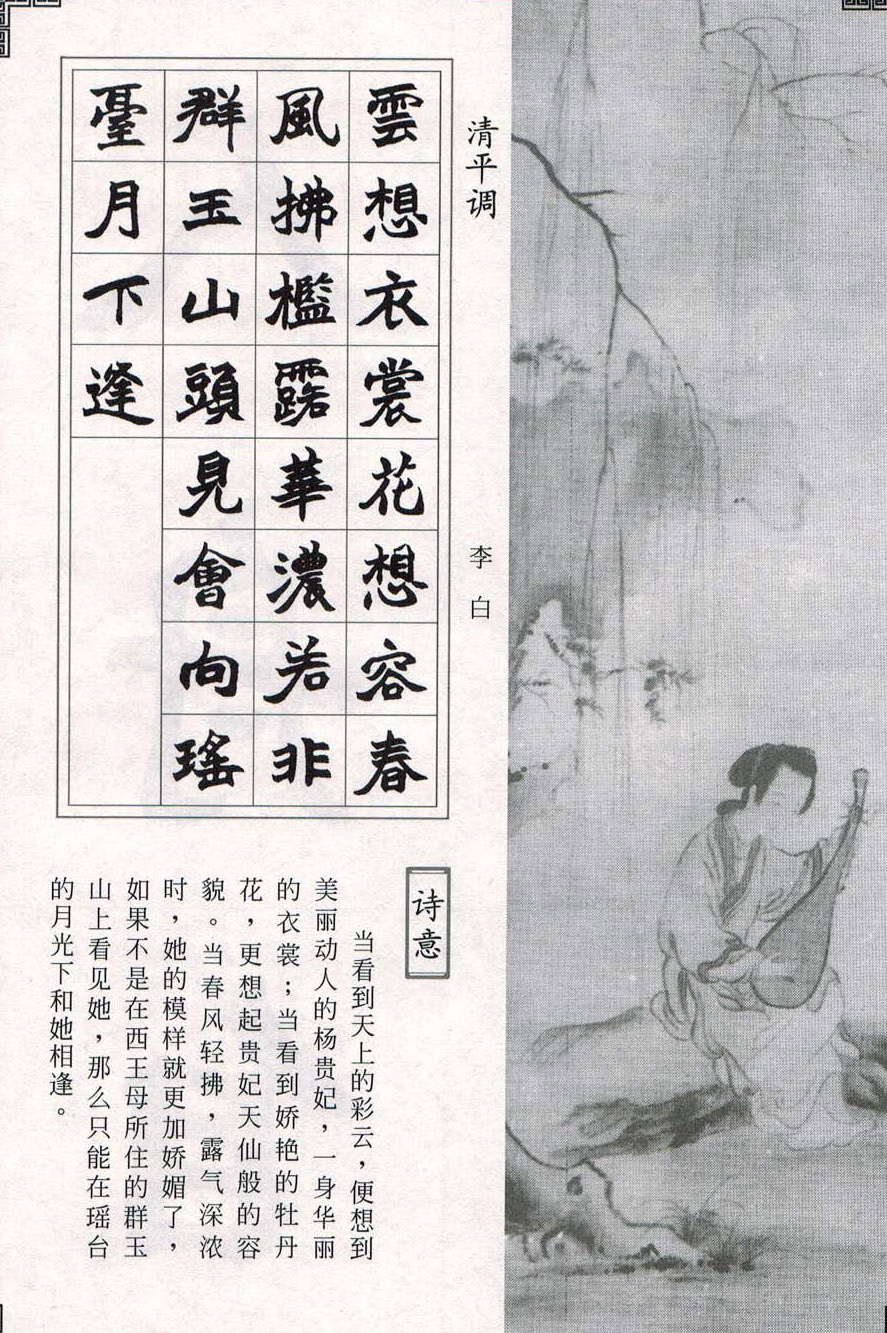 清平调
李白
雲想衣裳花想容春
風拂檻露華濃若非
群玉山頭見會向瑤
臺月下逢
诗意
当看到天上的彩云，便想到
美丽动人的杨贵妃，一身华丽
的衣裳；当看到娇艳的牡丹
花，更想起贵妃天仙般的容
貌。当春风轻拂，露气深浓
时，她的模样就更加娇媚了，
如果不是在西王母所住的群玉
山上看见她，那么只能在瑶台
的月光下和她相逢。